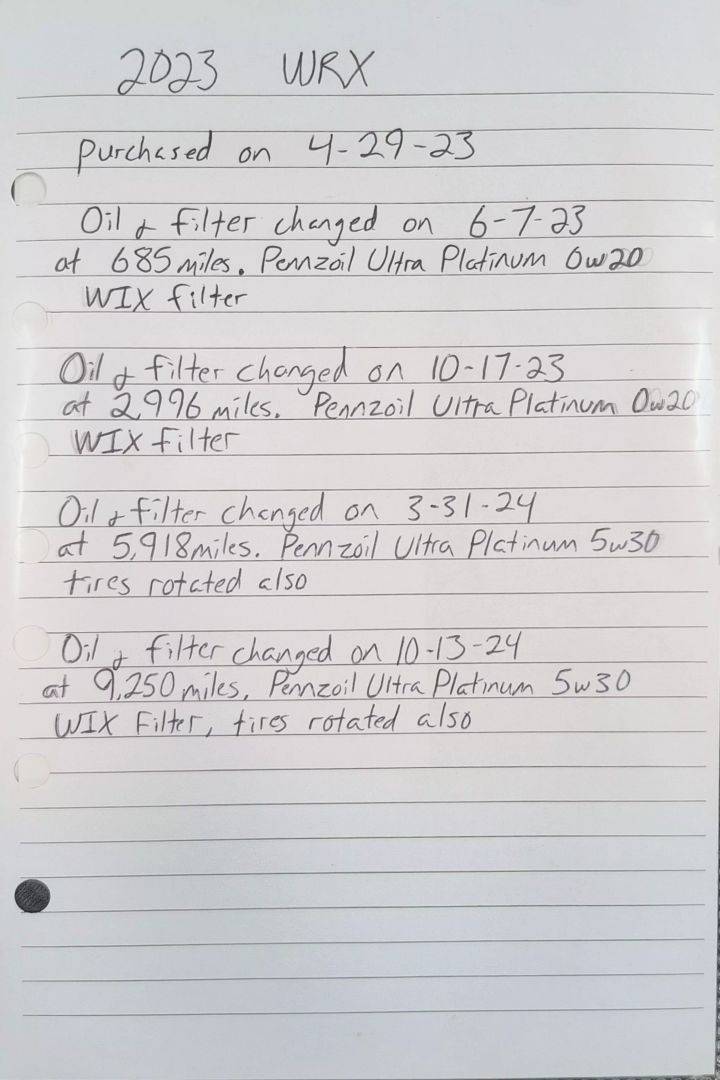 2023 WRX
Purchased on 4-29-23
Oil & filter changed on 6-7-23
at 685 miles. Pennzoil Ultra Platinum 0w20
WIX filter
Oil & filter changed on 10-17-23
at 2,996 miles. Pennzoil Ultra Platinum 0w20
WIX filter
Oil & filter changed on 3-31-24
at 5,918 miles. Pennzoil Ultra Platinum 5w30
tires rotated also
Oil & filter changed on 10-13-24
at 9,250 miles, Pennzoil Ultra Platinum 5w30
WIX Filter, tires rotated also